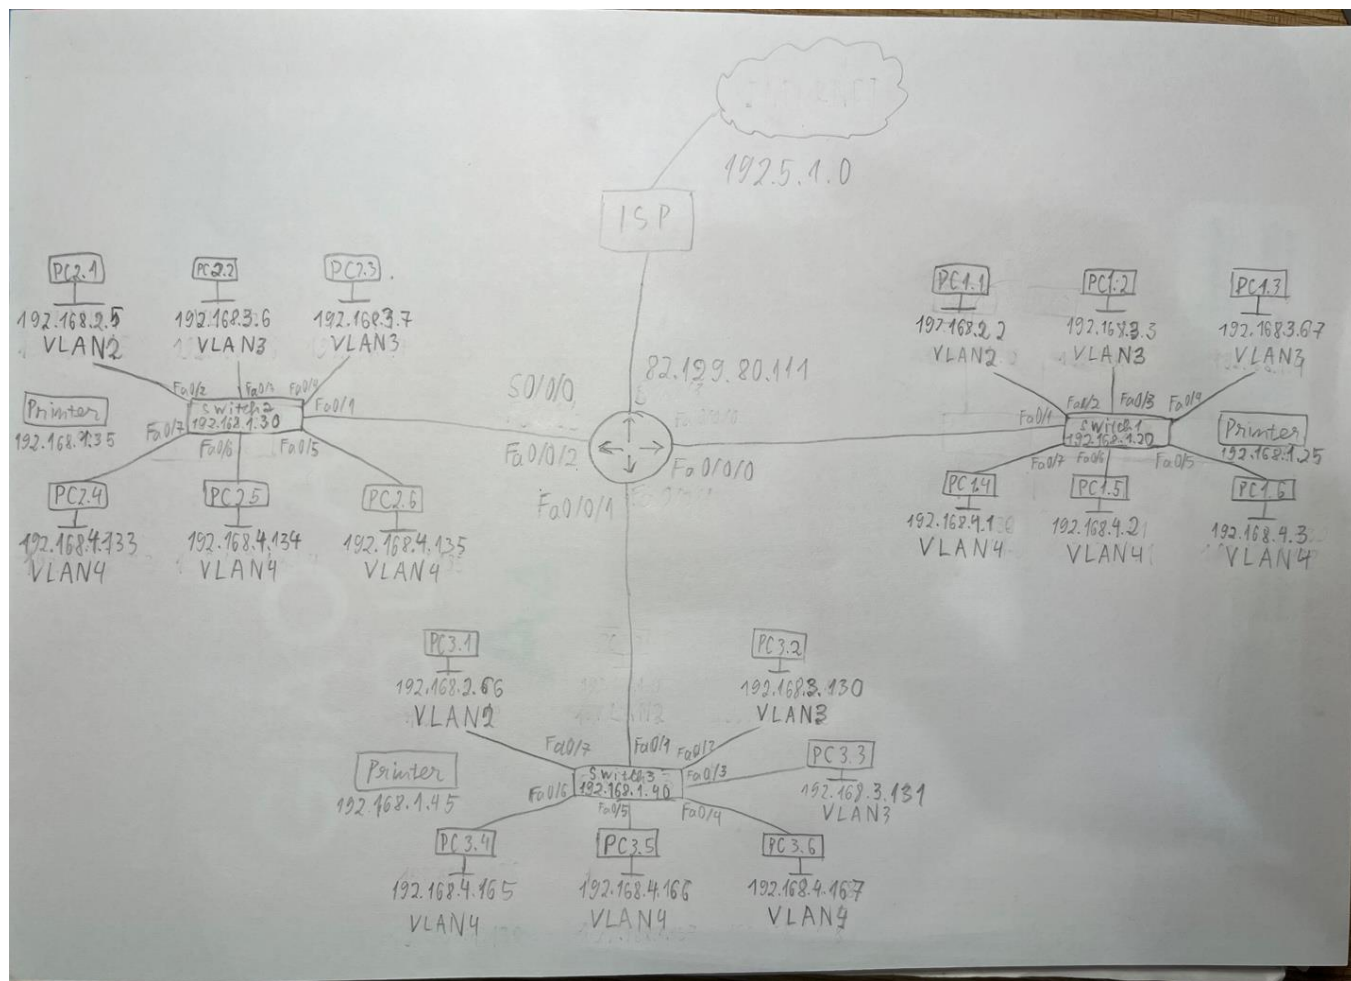 192.5.1.0
ISP
82.129.80.111
S0/0/0
Fa0/0/2
Fa0/0/0
Fa0/0/1
PC2.1
192.168.2.5
VLAN2
PC2.2
192.168.3.6
VLAN3
PC2.3
192.168.3.7
VLAN3
Printer
192.168.1.35
Fa0/2
Fa0/3
Fa0/4
Fa0/1
Switch2
192.168.1.30
Fa0/7
Fa0/6
Fa0/5
PC2.4
192.168.4.133
VLAN4
PC2.5
192.168.4.134
VLAN4
PC2.6
192.168.4.135
VLAN4
PC1.1
192.168.2.2
VLAN2
PC1.2
192.168.3.3
VLAN3
PC1.3
192.168.3.67
VLAN3
Fa0/1
Fa0/2
Fa0/3
Fa0/4
Switch1
192.168.1.20
Printer
192.168.1.25
Fa0/7
Fa0/6
Fa0/5
PC1.4
192.168.4.1
VLAN4
PC1.5
192.168.4.2
VLAN4
PC1.6
192.168.4.3
VLAN4
PC3.1
192.168.2.66
VLAN2
PC3.2
192.168.3.130
VLAN3
Fa0/7
Fa0/1
Fa0/2
Printer
192.168.1.45
Switch3
192.168.1.40
Fa0/3
PC3.3
192.168.3.131
VLAN3
Fa0/6
Fa0/5
Fa0/4
PC3.4
192.168.4.165
VLAN4
PC3.5
192.168.4.166
VLAN4
PC3.6
192.168.4.167
VLAN4